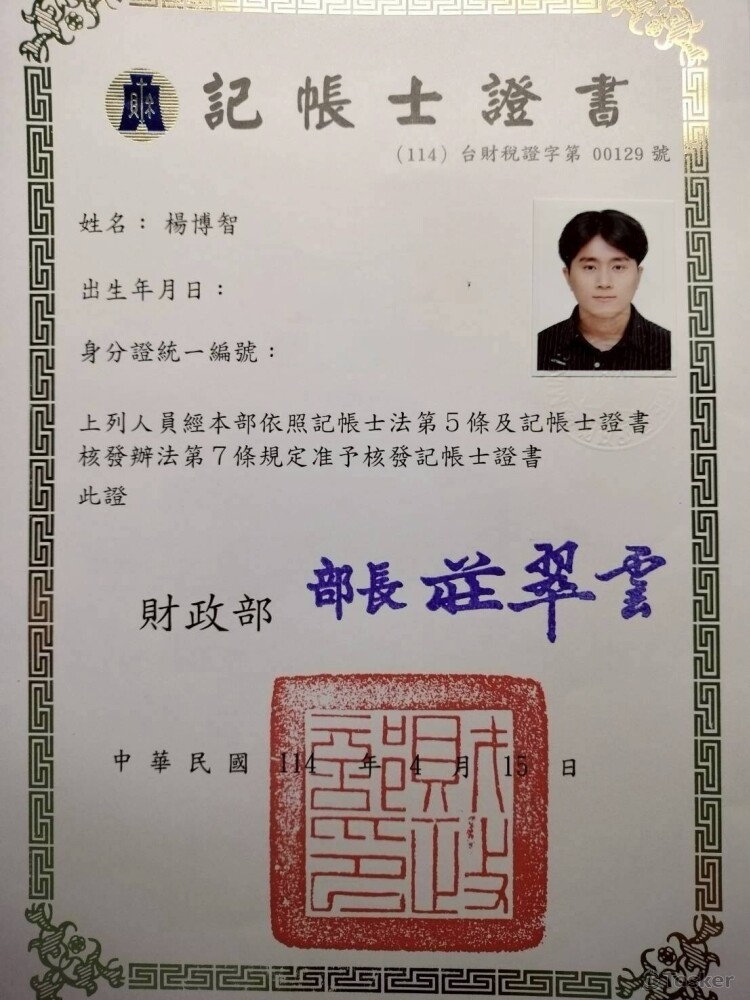 記帳士證書
(114) 台財稅證字第 00129 號
姓名：楊博智
出生年月日：
身分證統一編號：
上列人員經本部依照記帳士法第5條及記帳士證書
核發辦法第7條規定准予核發記帳士證書
此證
財政部 部長 莊翠雲
中華民國 114 年 4 月 15 日
財政部印
Tasker